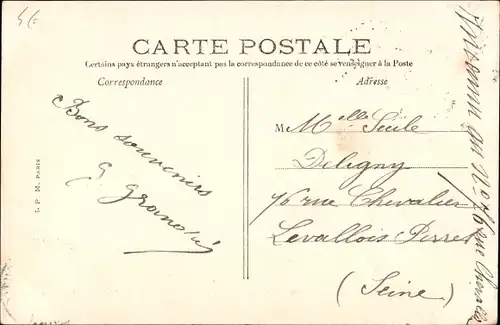 CARTE POSTALE
Certains pays étrangers n'acceptant pas la correspondance de ce côté se renseigner à la Poste
Correspondance
Adresse
Bons souvenirs
G.
M Melle
Deligny
76 rue Chevalier
Levallois Perret
(Seine)
au No 76 rue
I. P. M. PARIS